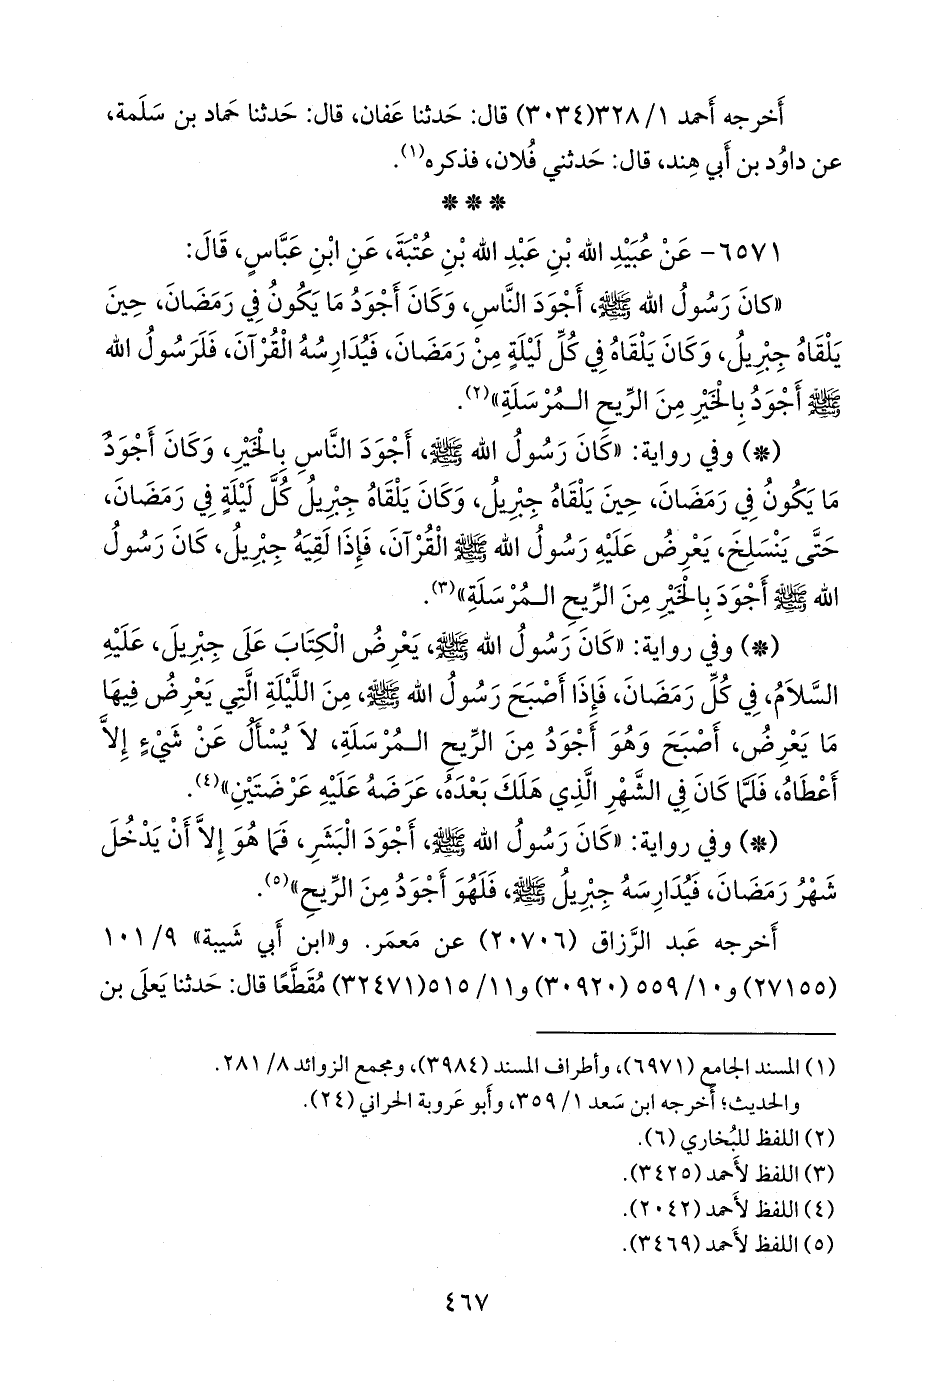 أَخرجه أَحمد ١/ ٣٢٨(٣٠٣٤) قال: حَدثنا عَفان، قال: حَدثنا حَماد بن سَلَمة،
عن داوُد بن أَبي هِند، قال: حَدثني فُلان، فذكره(١).
* * *
٦٥٧١- عَنْ عُبَيْدِ الله بْنِ عَبْدِ الله بْنِ عُتْبَةَ، عَنِ ابْنِ عَبَّاسٍ، قَالَ:
«كانَ رَسُولُ الله ﷺ، أَجْوَدَ النَّاسِ، وَكَانَ أَجْوَدُ مَا يَكُونُ فِي رَمَضَانَ، حِينَ
يَلْقَاهُ جِبْرِيلُ، وَكَانَ يَلْقَاهُ فِي كُلِّ لَيْلَةٍ مِنْ رَمَضَانَ، فَيُدَارِسُهُ الْقُرْآنَ، فَلَرَسُولُ الله
ﷺ أَجْوَدُ بِالْخَيْرِ مِنَ الرِّيحِ الـمُرْسَلَةِ»(٢).
(*) وفي رواية: «كَانَ رَسُولُ الله ﷺ، أَجْوَدَ النَّاسِ بِالْخَيْرِ، وَكَانَ أَجْوَدُ
مَا يَكُونُ فِي رَمَضَانَ، حِينَ يَلْقَاهُ جِبْرِيلُ، وَكَانَ يَلْقَاهُ جِبْرِيلُ كُلَّ لَيْلَةٍ فِي رَمَضَانَ،
حَتَّى يَنْسَلِخَ، يَعْرِضُ عَلَيْهِ رَسُولُ الله ﷺ الْقُرْآنَ، فَإِذَا لَقِيَهُ جِبْرِيلُ، كَانَ رَسُولُ
الله ﷺ أَجْوَدَ بِالْخَيْرِ مِنَ الرِّيحِ الـمُرْسَلَةِ»(٣).
(*) وفي رواية: «كَانَ رَسُولُ الله ﷺ، يَعْرِضُ الْكِتَابَ عَلَى جِبْرِيلَ، عَلَيْهِ
السَّلَامُ، فِي كُلِّ رَمَضَانَ، فَإِذَا أَصْبَحَ رَسُولُ الله ﷺ، مِنَ اللَّيْلَةِ الَّتِي يَعْرِضُ فِيهَا
مَا يَعْرِضُ، أَصْبَحَ وَهُوَ أَجْوَدُ مِنَ الرِّيحِ الـمُرْسَلَةِ، لاَ يُسْأَلُ عَنْ شَيْءٍ إِلاَّ
أَعْطَاهُ، فَلَمَّا كَانَ فِي الشَّهْرِ الَّذِي هَلَكَ بَعْدَهُ، عَرَضَهُ عَلَيْهِ عَرْضَتَيْنِ»(٤).
(*) وفي رواية: «كَانَ رَسُولُ الله ﷺ، أَجْوَدَ الْبَشَرِ، فَمَا هُوَ إِلاَّ أَنْ يَدْخُلَ
شَهْرُ رَمَضَانَ، فَيُدَارِسَهُ جِبْرِيلُ ﷺ، فَلَهُوَ أَجْوَدُ مِنَ الرِّيحِ»(٥).
أَخرجه عَبد الرَّزاق (٢٠٧٠٦) عن مَعمَر. و«ابن أَبي شَيبة» ٩/ ١٠١
(٢٧١٥٥) و١٠/ ٥٥٩ (٣٠٩٢٠) و١١/ ٥١٥(٣٢٤٧١) مُقَطَّعًا قال: حَدثنا يَعلَى بن
(١) المسند الجامع (٦٩٧١)، وأطراف المسند (٣٩٨٤)، ومجمع الزوائد ٨/ ٢٨١.
والحديث؛ أَخرجه ابن سَعد ١/ ٣٥٩، وأَبو عَروبة الحراني (٢٤).
(٢) اللفظ للبُخاري (٦).
(٣) اللفظ لأَحمد (٣٤٢٥).
(٤) اللفظ لأَحمد (٢٠٤٢).
(٥) اللفظ لأَحمد (٣٤٦٩).
٤٦٧